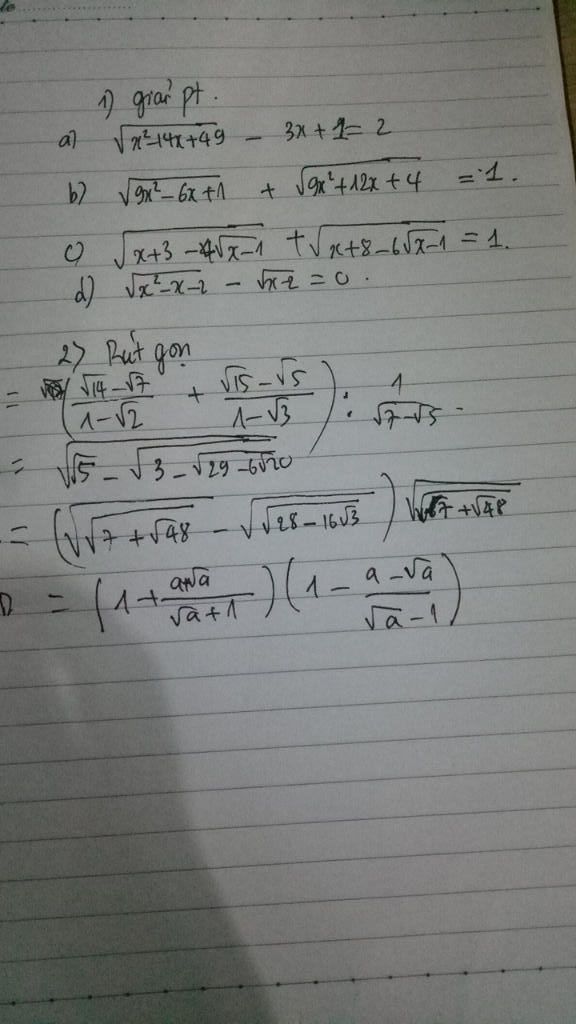 1) giải pt.
a) √(x²-14x+49) - 3x+1=2
b) √(9x²-6x+1) + √(9x²+12x+4) = 1.
c) √(x+3-4√(x-1)) + √(x+8-6√(x-1)) = 1.
d) √(x²-x-2) - √(x-2) = 0.
2) Rút gọn
= ((√14-√7)/(1-√2) + (√15-√5)/(1-√3)) : 1/(√7-√5)
= √(√5-√(3-√(29-6√20)))
= (√(√(7+√48)) - √(√(28-16√3))) √(√(7+√48))
= (1+(a+√a)/(√a+1))(1-(a-√a)/(√a-1))